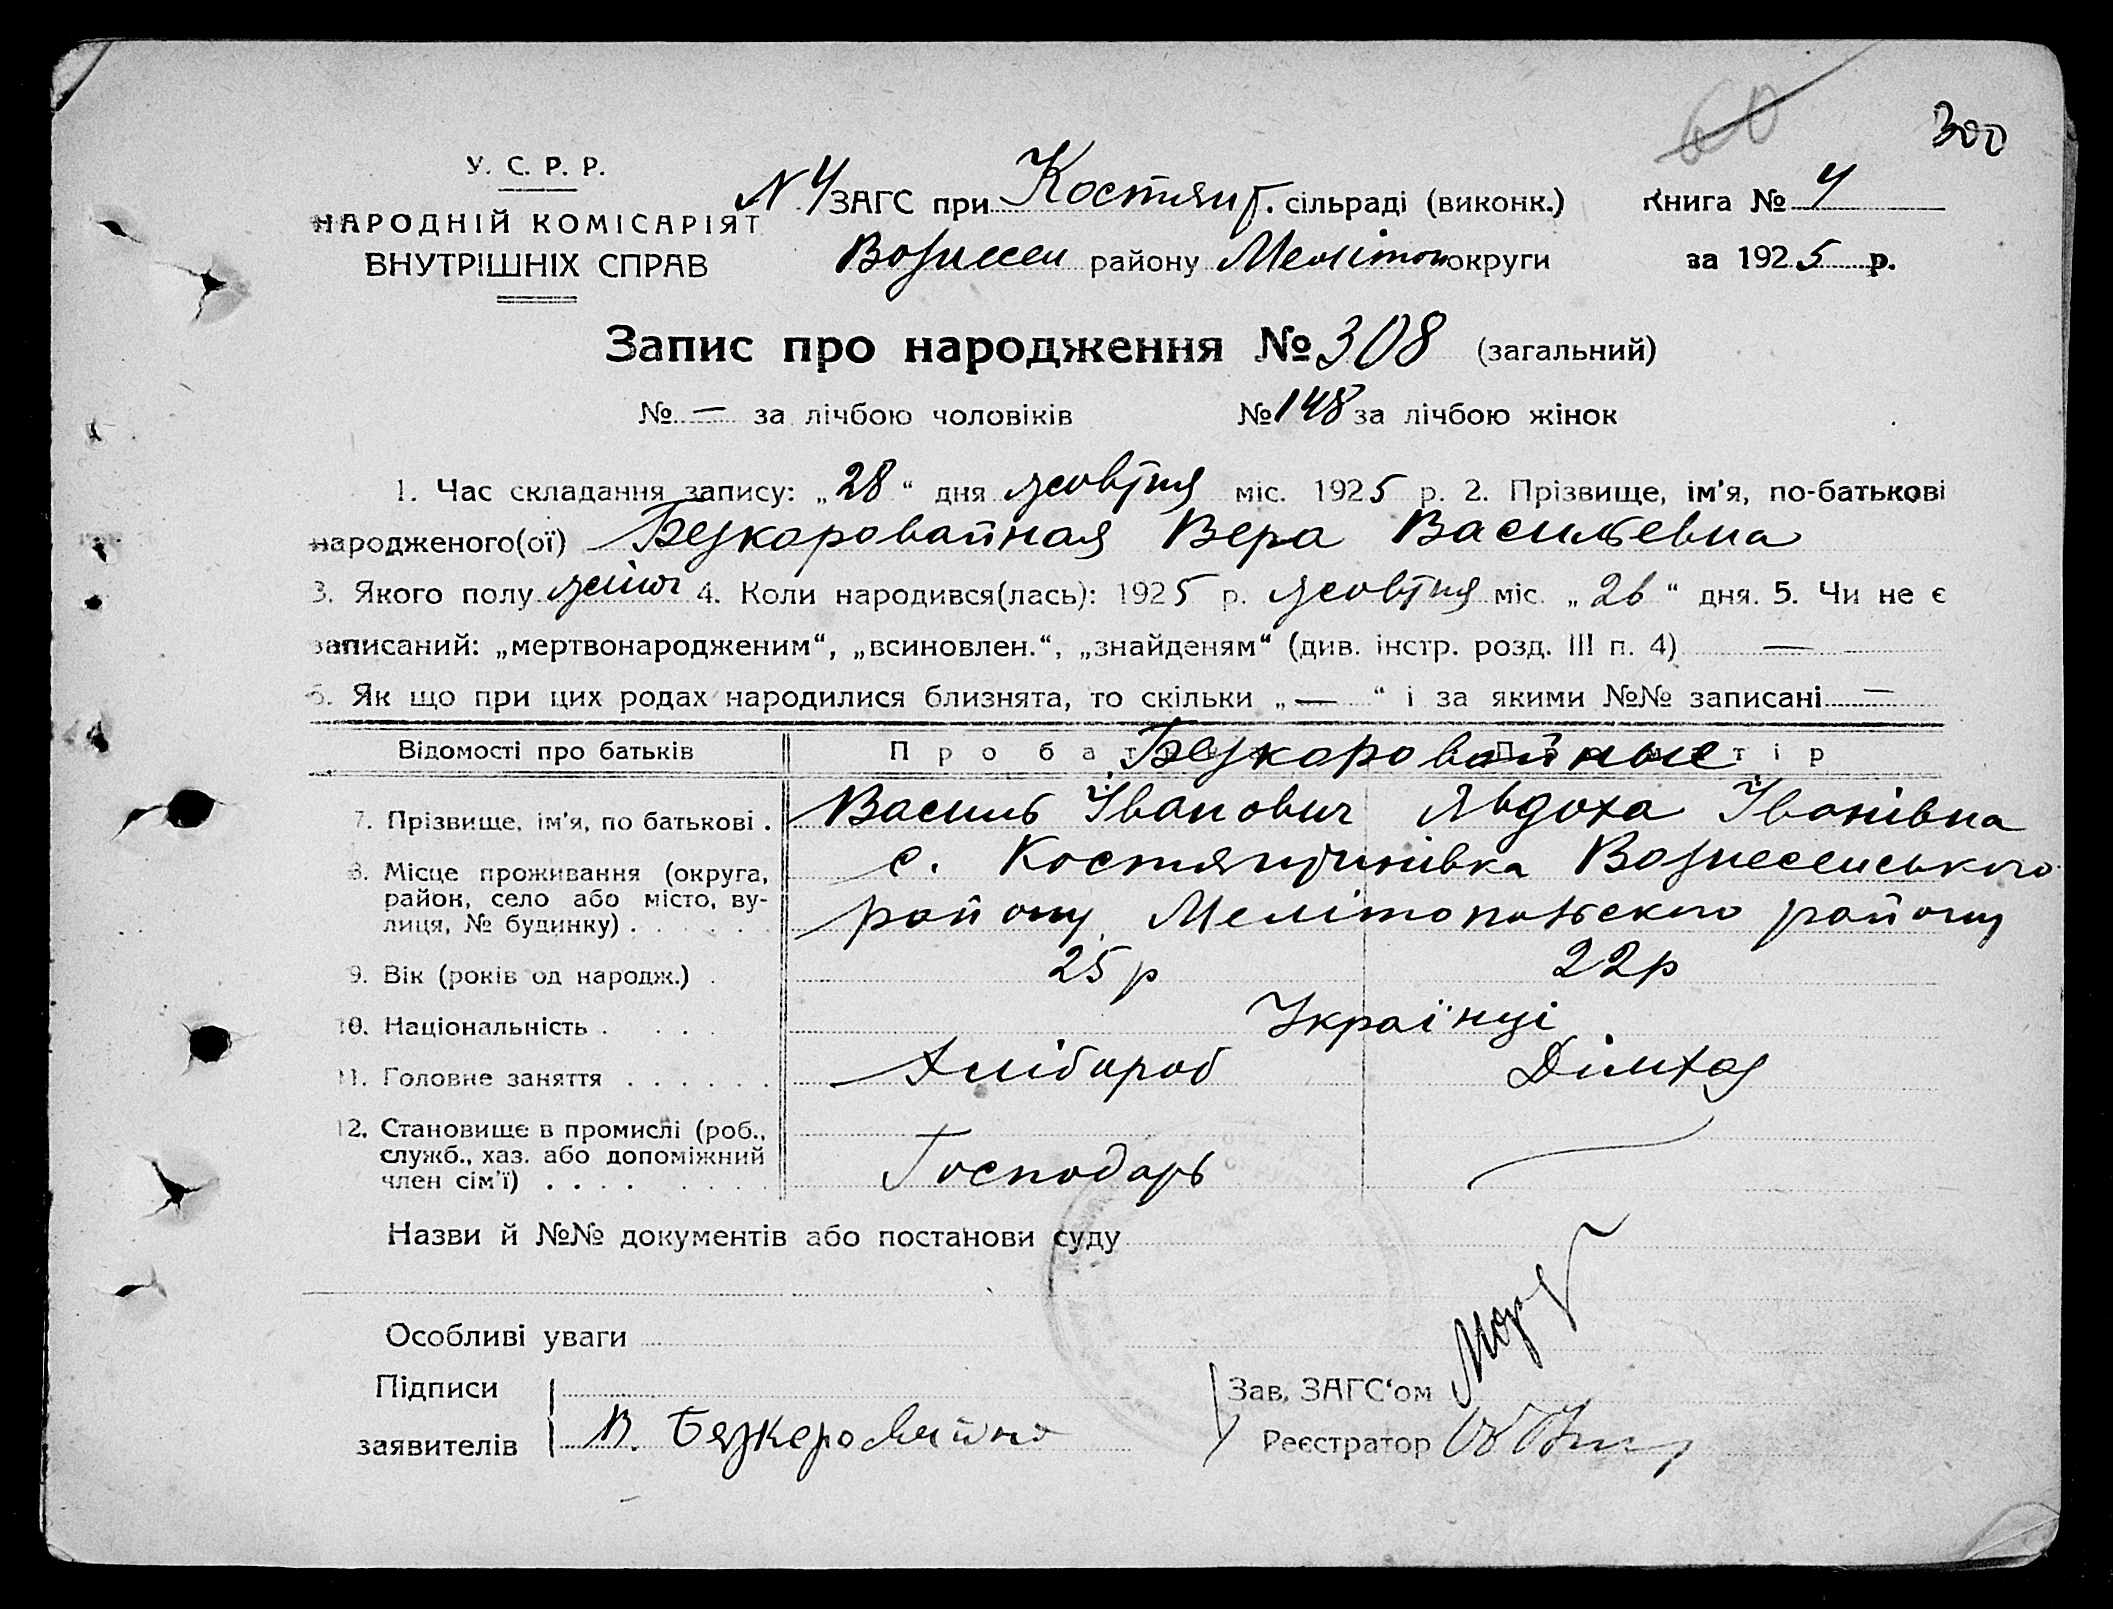 60
300
У. С. Р. Р.
НАРОДНІЙ КОМІСАРІЯТ
ВНУТРІШНІХ СПРАВ
N 4 ЗАГС при Костянт. сільраді (виконк.)
Книга № 4
Вознесен району Мелітоп округи
за 1925 р.
Запис про народження № 308 (загальний)
№ — за лічбою чоловіків № 148 за лічбою жінок
1. Час складання запису: „28“ дня жовтня міс. 1925 р. 2. Прізвище, ім'я, по-батькові
народженого(ої) Безкоровайная Вера Васильевна
3. Якого полу жіноч 4. Коли народився(лась): 1925 р. жовтня міс. „26“ дня. 5. Чи не є
записаний: „мертвонародженим“, „всиновлен.“, „знайденям“ (див. інстр. розд. III п. 4) —
6. Як що при цих родах народилися близнята, то скільки „—“ і за якими №№ записані —
Відомості про батьків
Безкоровайные
7. Прізвище, ім'я, по батькові . Василь Іванович Явдоха Іванівна
8. Місце проживання (округа, район, село або місто, вулиця, № будинку) . с. Костянтинівка Вознесенського
району Мелітопольского району
9. Вік (років од народж.) . 25р 22р
10. Національність . Українці
11. Головне заняття . Хлібороб Дімхаз
12. Становище в промислі (роб., служб., хаз. або допоміжний член сім'ї) . Господарь —
Назви й №№ документів або постанови суду
Особливі уваги
Підписи
заявителів В. Безкоровайно
Зав. ЗАГС'ом
Реєстратор